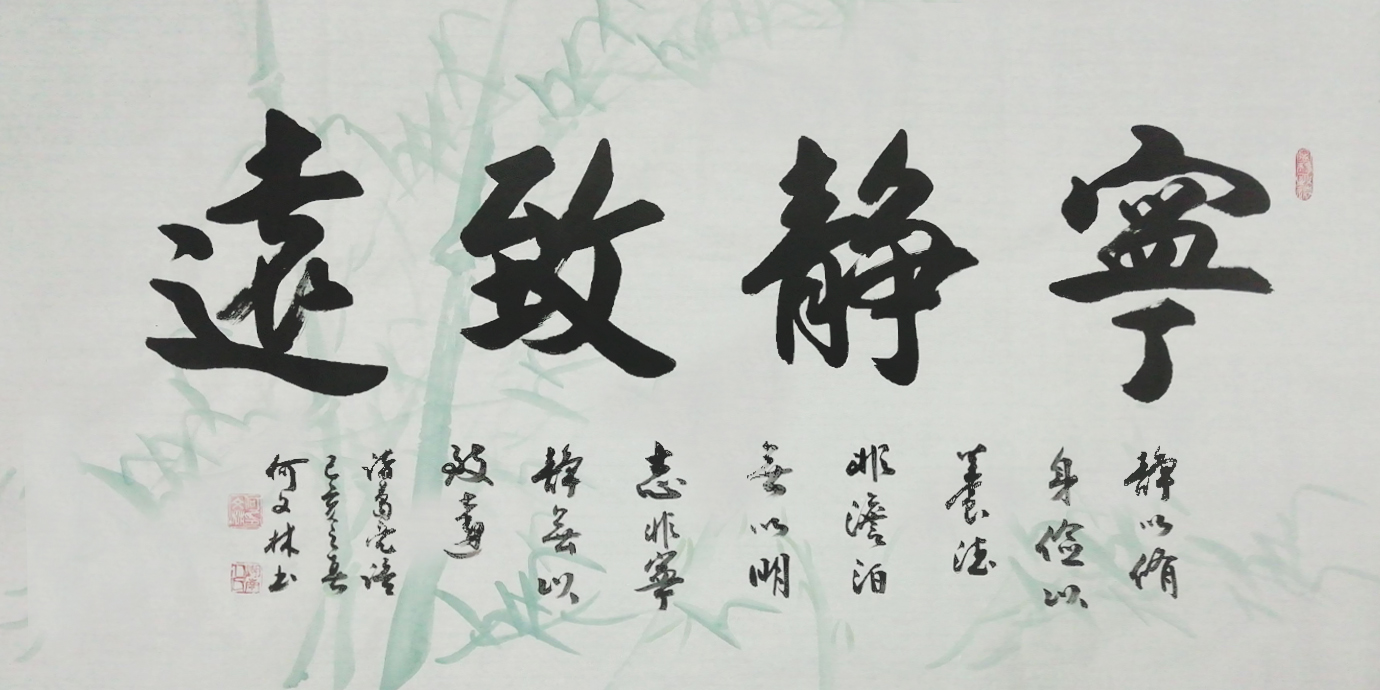 寧靜致遠
靜以脩
身儉以
養德
非澹泊
無以明
志非寧
靜無以
致遠
諸葛亮語
己亥之春
何文林书